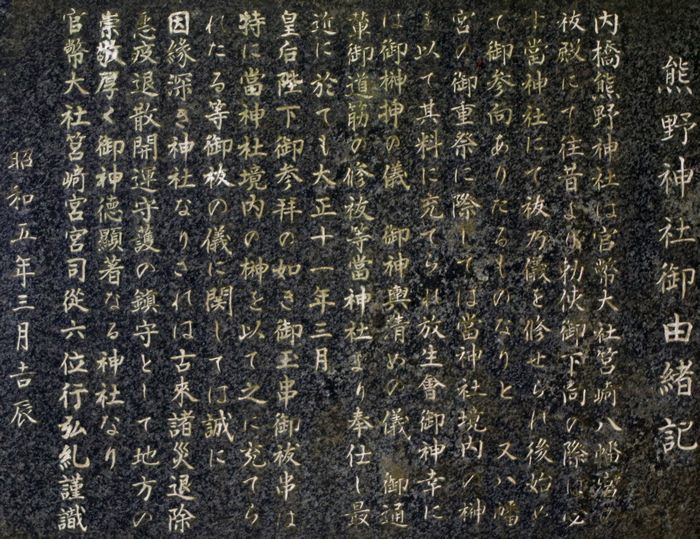 熊野神社御由緒記
内橋熊野神社は官幣大社筥崎八幡宮の
祓殿にて往昔より勅使御下向の際は必
す當神社にて祓乃儀を修せられ後始め
て御参向ありたるものなりと又八幡
宮の御重祭に際しては當神社境内の榊
を以て其料に充てられ放生會御神幸に
は御榊押の儀 御神輿清めの儀 御通
輦御道筋の修祓等當神社より奉仕し最
近に於ても大正十一年三月
皇后陛下御参拜の如き御玉串御祓串は
特に當神社境内の榊を以て之に充てら
れたる等御祓の儀に関しては誠に
因縁深き神社なりされは古来諸災退除
悪疫退散開運守護の鎮守として地方の
崇敬厚く御神徳顯著なる神社なり
官幣大社筥崎宮宮司從六位行弘糺謹識
昭和五年三月吉辰